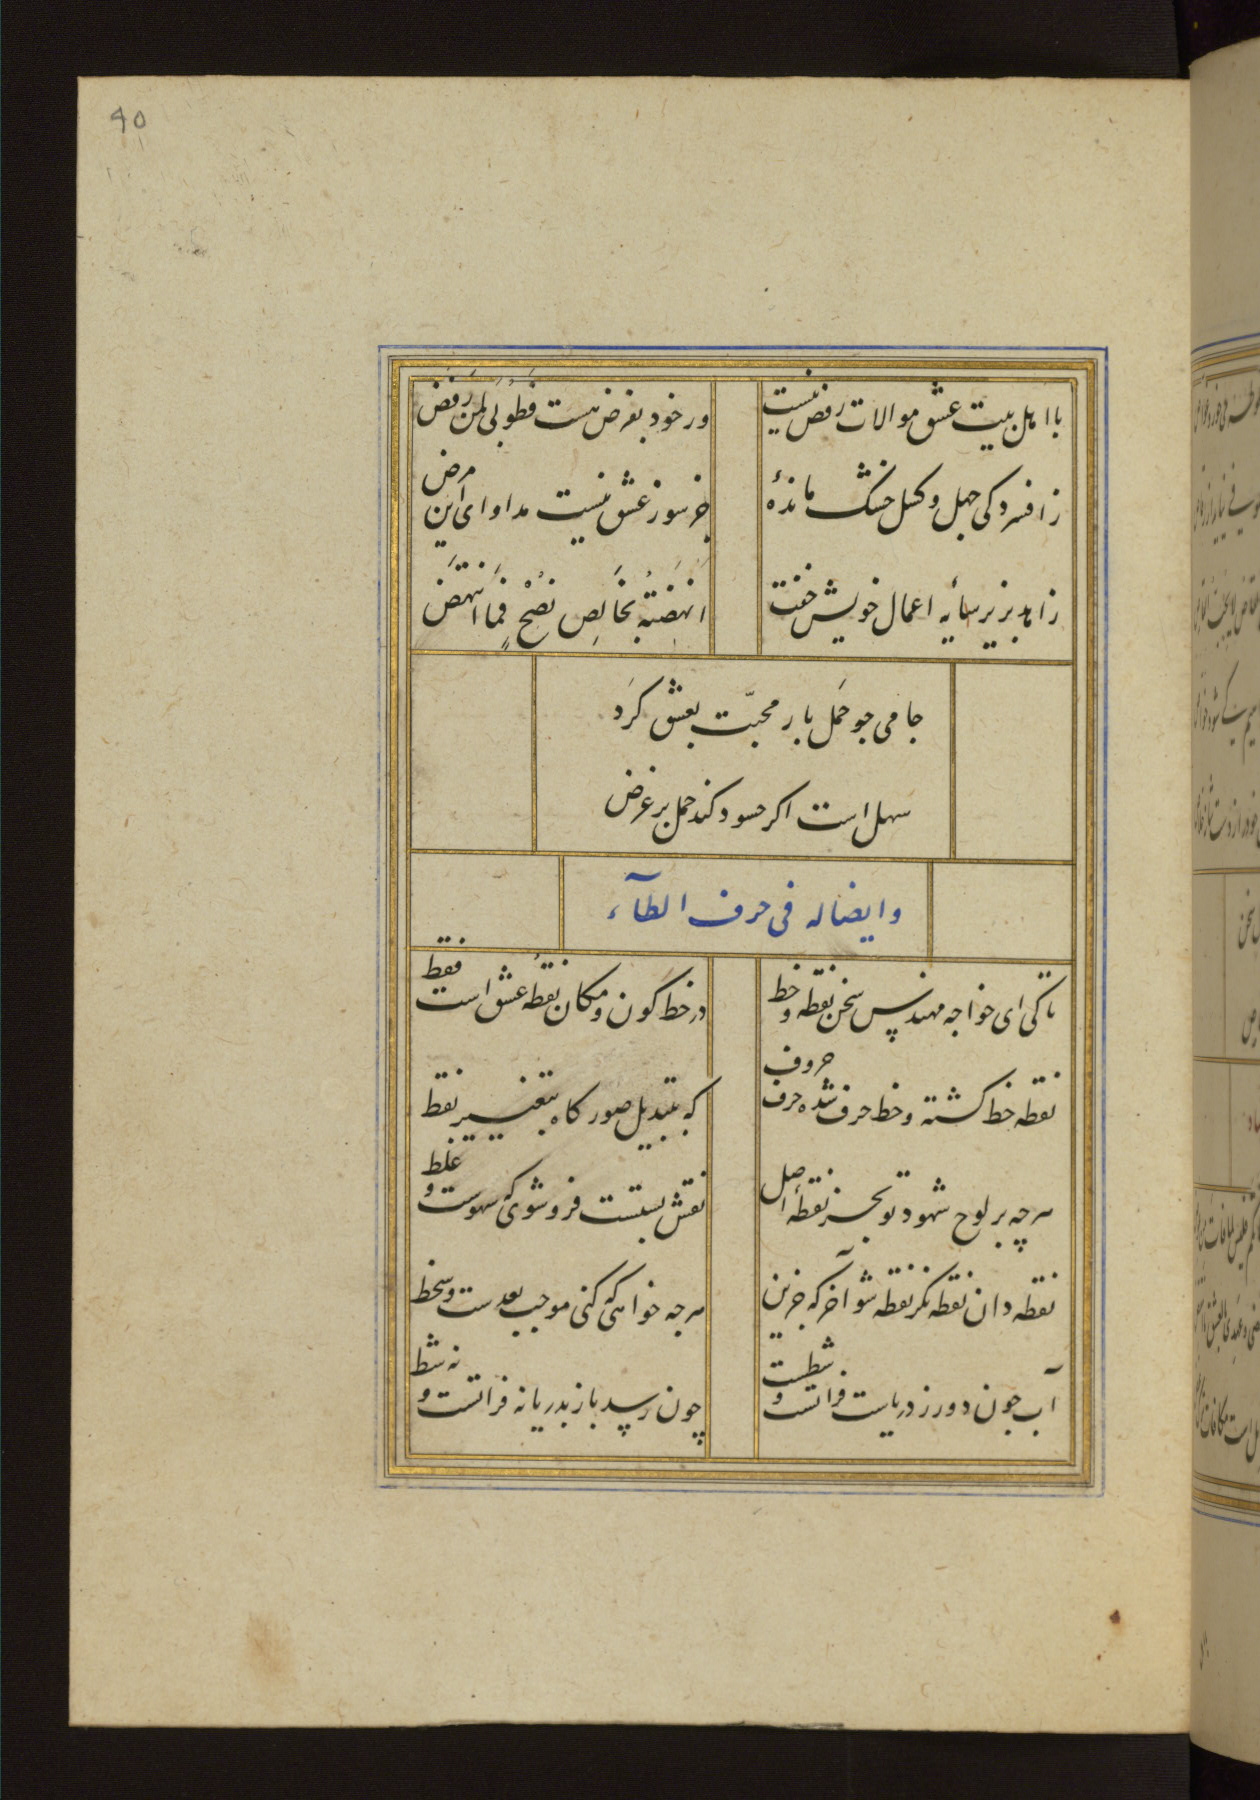 ۴۵
با اهل بیت عشق موالات رفض نیست
ور خود بفرض هست فَطُوبَی لِمَن رَفَض
ز افسردکی جهل و کسل خشک ماندهٔ
جز سوز عشق نیست مداوای این مرض
زاهد بزیر سایهٔ اعمال خویش خفت
انهضتُه بخالِصِ نُصْحٍ فما انتَهَض
جامی جو حَمل بار محبّت بعشق کرد
سهل است اکر حسود کند حمل بر غرض
وایضا له فی حرف الطآء
تا کی ای خواجه مهندس سخن نقطه و خط
در خط کون و مکان نقطهٔ عشق است فقط
نقطه خط کشته و خط حرف شده حرف حروف
که بتبدیل صور کاه بتغییر نقط
هرچه بر لوح شهود تو بجز نقطهٔ اصل
نقش بستست فروشوی که سهوست و غلط
نقطه دان نقطه نکر نقطه شو آخر که جزین
هرجه خواهی که کنی موجب بعدست و سخط
آب جون دور ز دریاست فراتست و شطست
چون رسد باز بدریا نه فراتست و نه شط